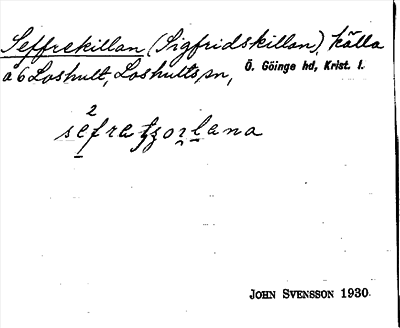 Seffrekillan (Sigfridskillan), källa
å 6 Loshult, Loshults sn, Ö. Göinge hd, Krist. l.
2
JOHN SVENSSON 1930.